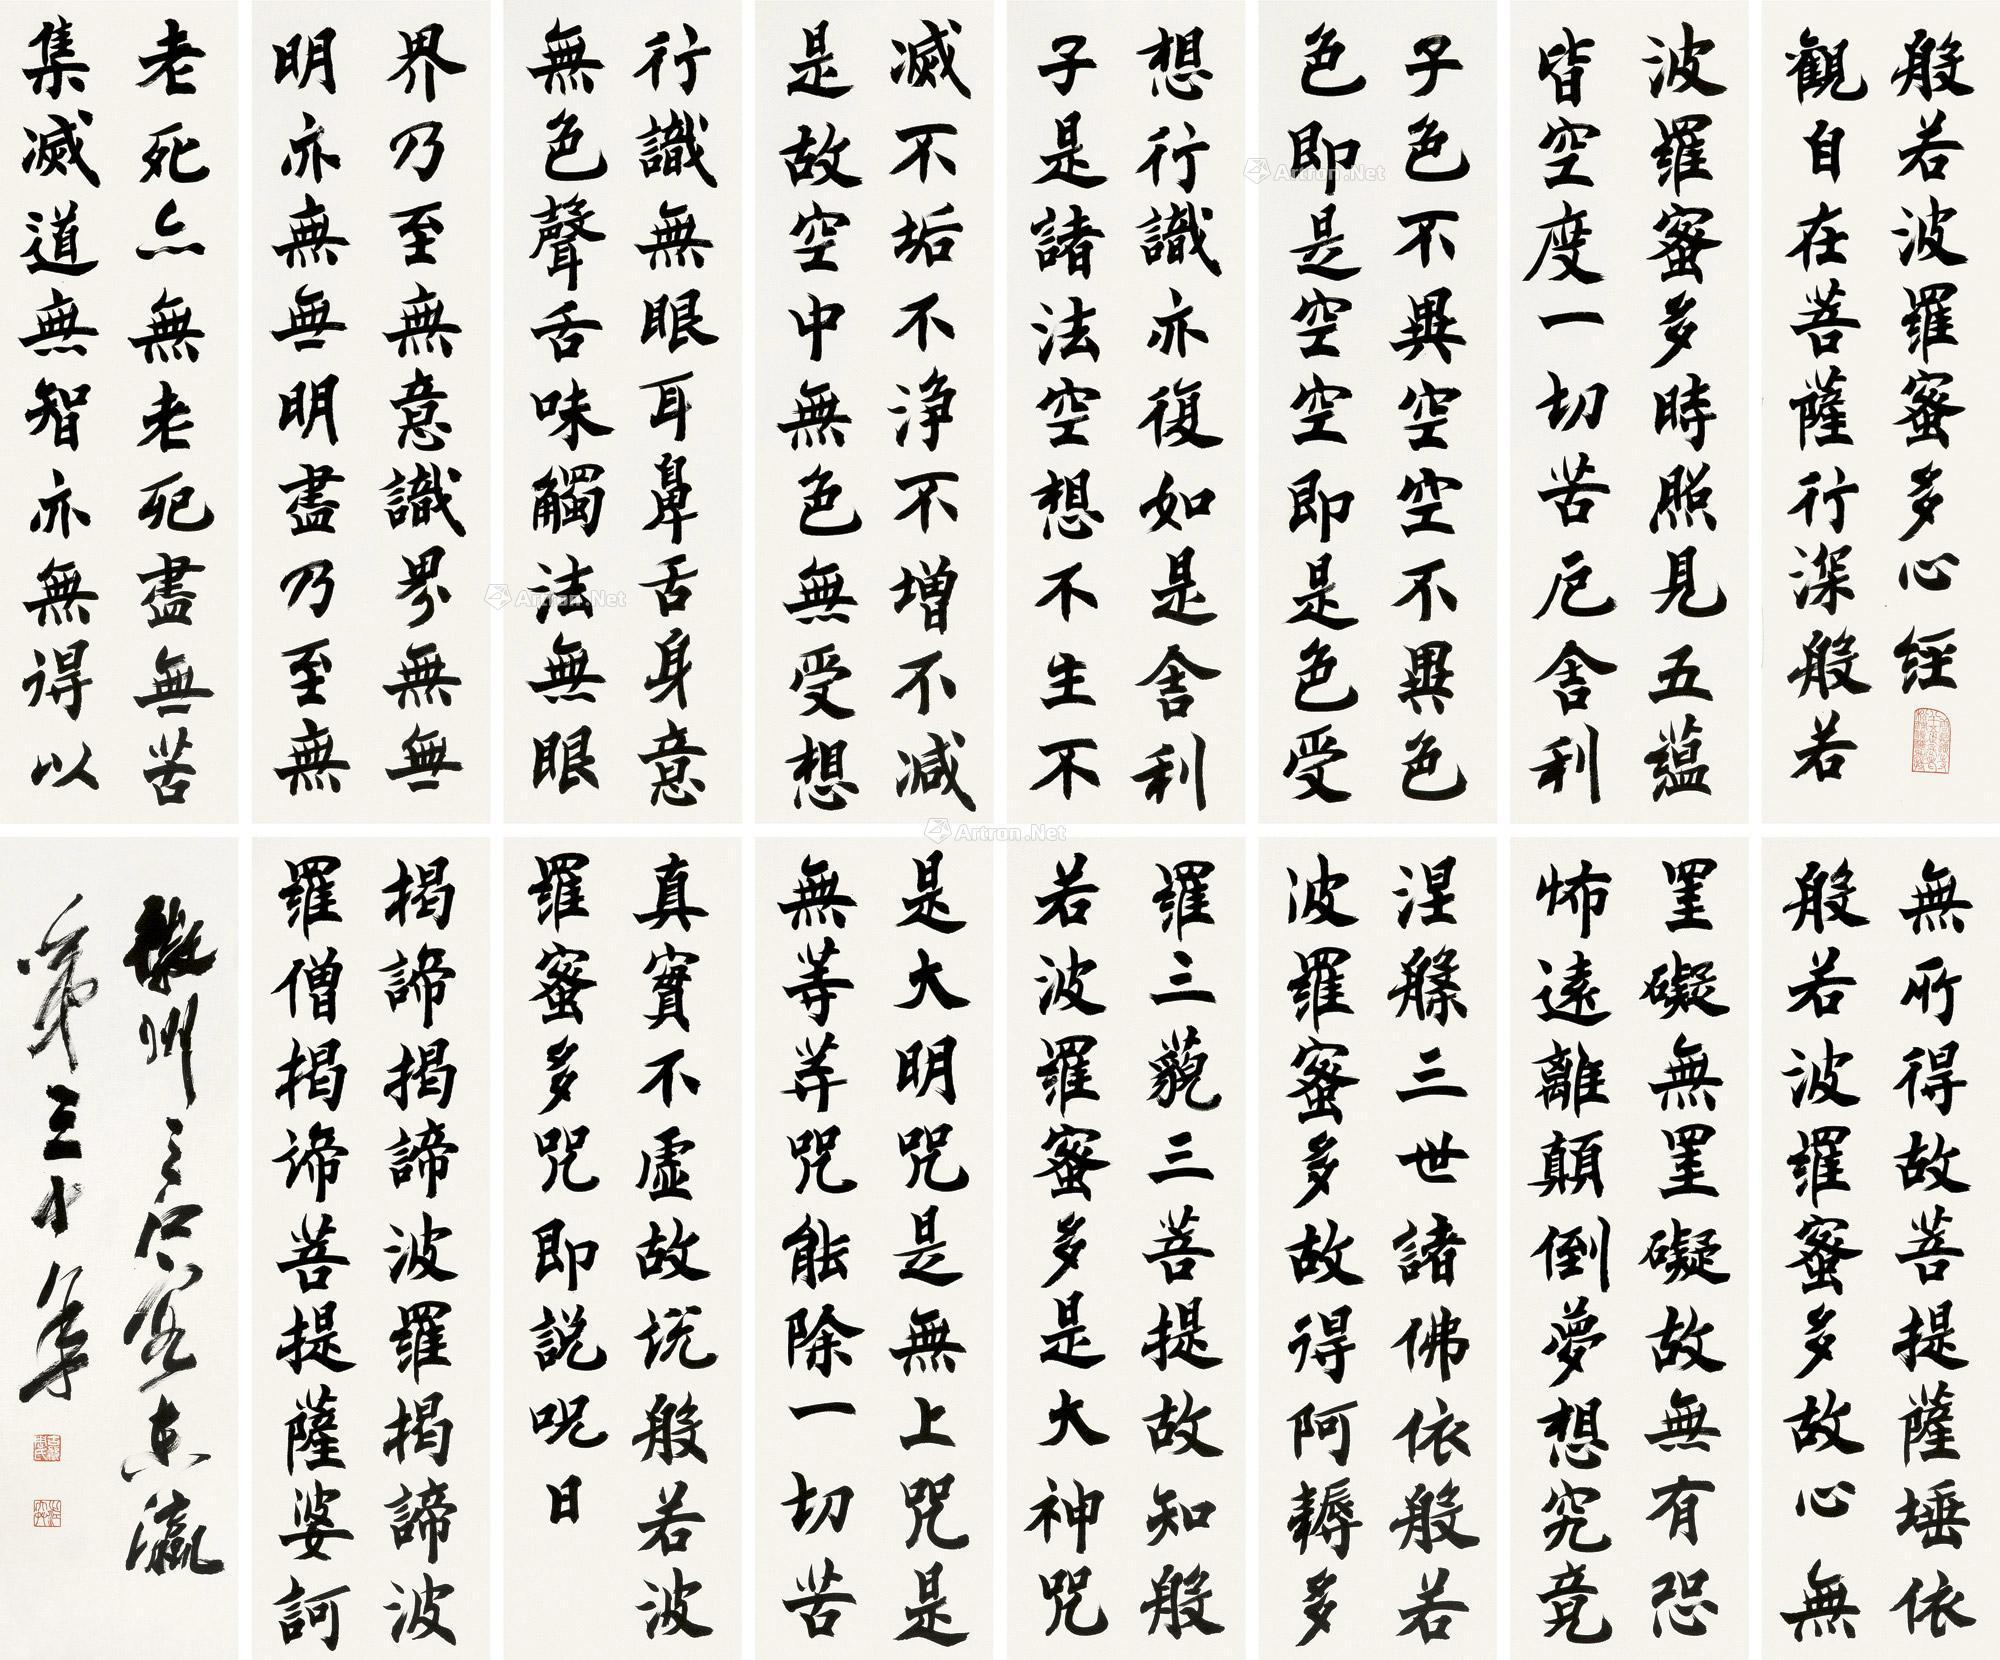 般若波羅蜜多心經
觀自在菩薩行深般若
波羅蜜多時照見五蘊
皆空度一切苦厄舍利
子色不異空空不異色
色即是空空即是色受
想行識亦復如是舍利
子是諸法空想不生不
滅不垢不浄不增不減
是故空中無色無受想
行識無眼耳鼻舌身意
無色聲舌味觸法無眼
界乃至無意識界無無
明亦無無明盡乃至無
老死亦無老死盡無苦
集滅道無智亦無得以
無所得故菩提薩埵依
般若波羅蜜多故心無
罣礙無罣礙故無有恐
怖遠離顛倒夢想究竟
涅槃三世諸佛依般若
波羅蜜多故得阿耨多
羅三藐三菩提故知般
若波羅蜜多是大神咒
是大明咒是無上咒是
無等等咒能除一切苦
真實不虛故説般若波
羅蜜多咒即説呪曰
揭諦揭諦波羅揭諦波
羅僧揭諦菩提薩婆訶
徽州客東瀛
第三十年
Artron.Net
Artron.Net
Artron.Net